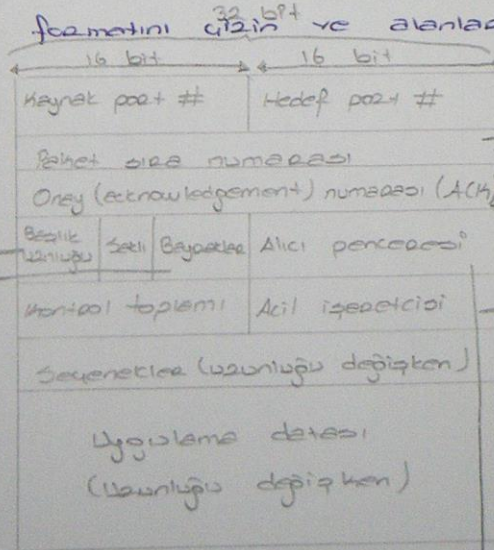 32 bit
formatını çizin ve alanlar
16 bit 16 bit
Kaynak port # Hedef port #
Paket sıra numarası
Onay (acknowledgement) numarası (ACK)
Başlık uzunluğu Saklı Bayraklar Alıcı penceresi
Kontrol toplamı Acil işaretcisi
Seçenekler (uzunluğu değişken)
Uygulama datası
(uzunluğu değişken)